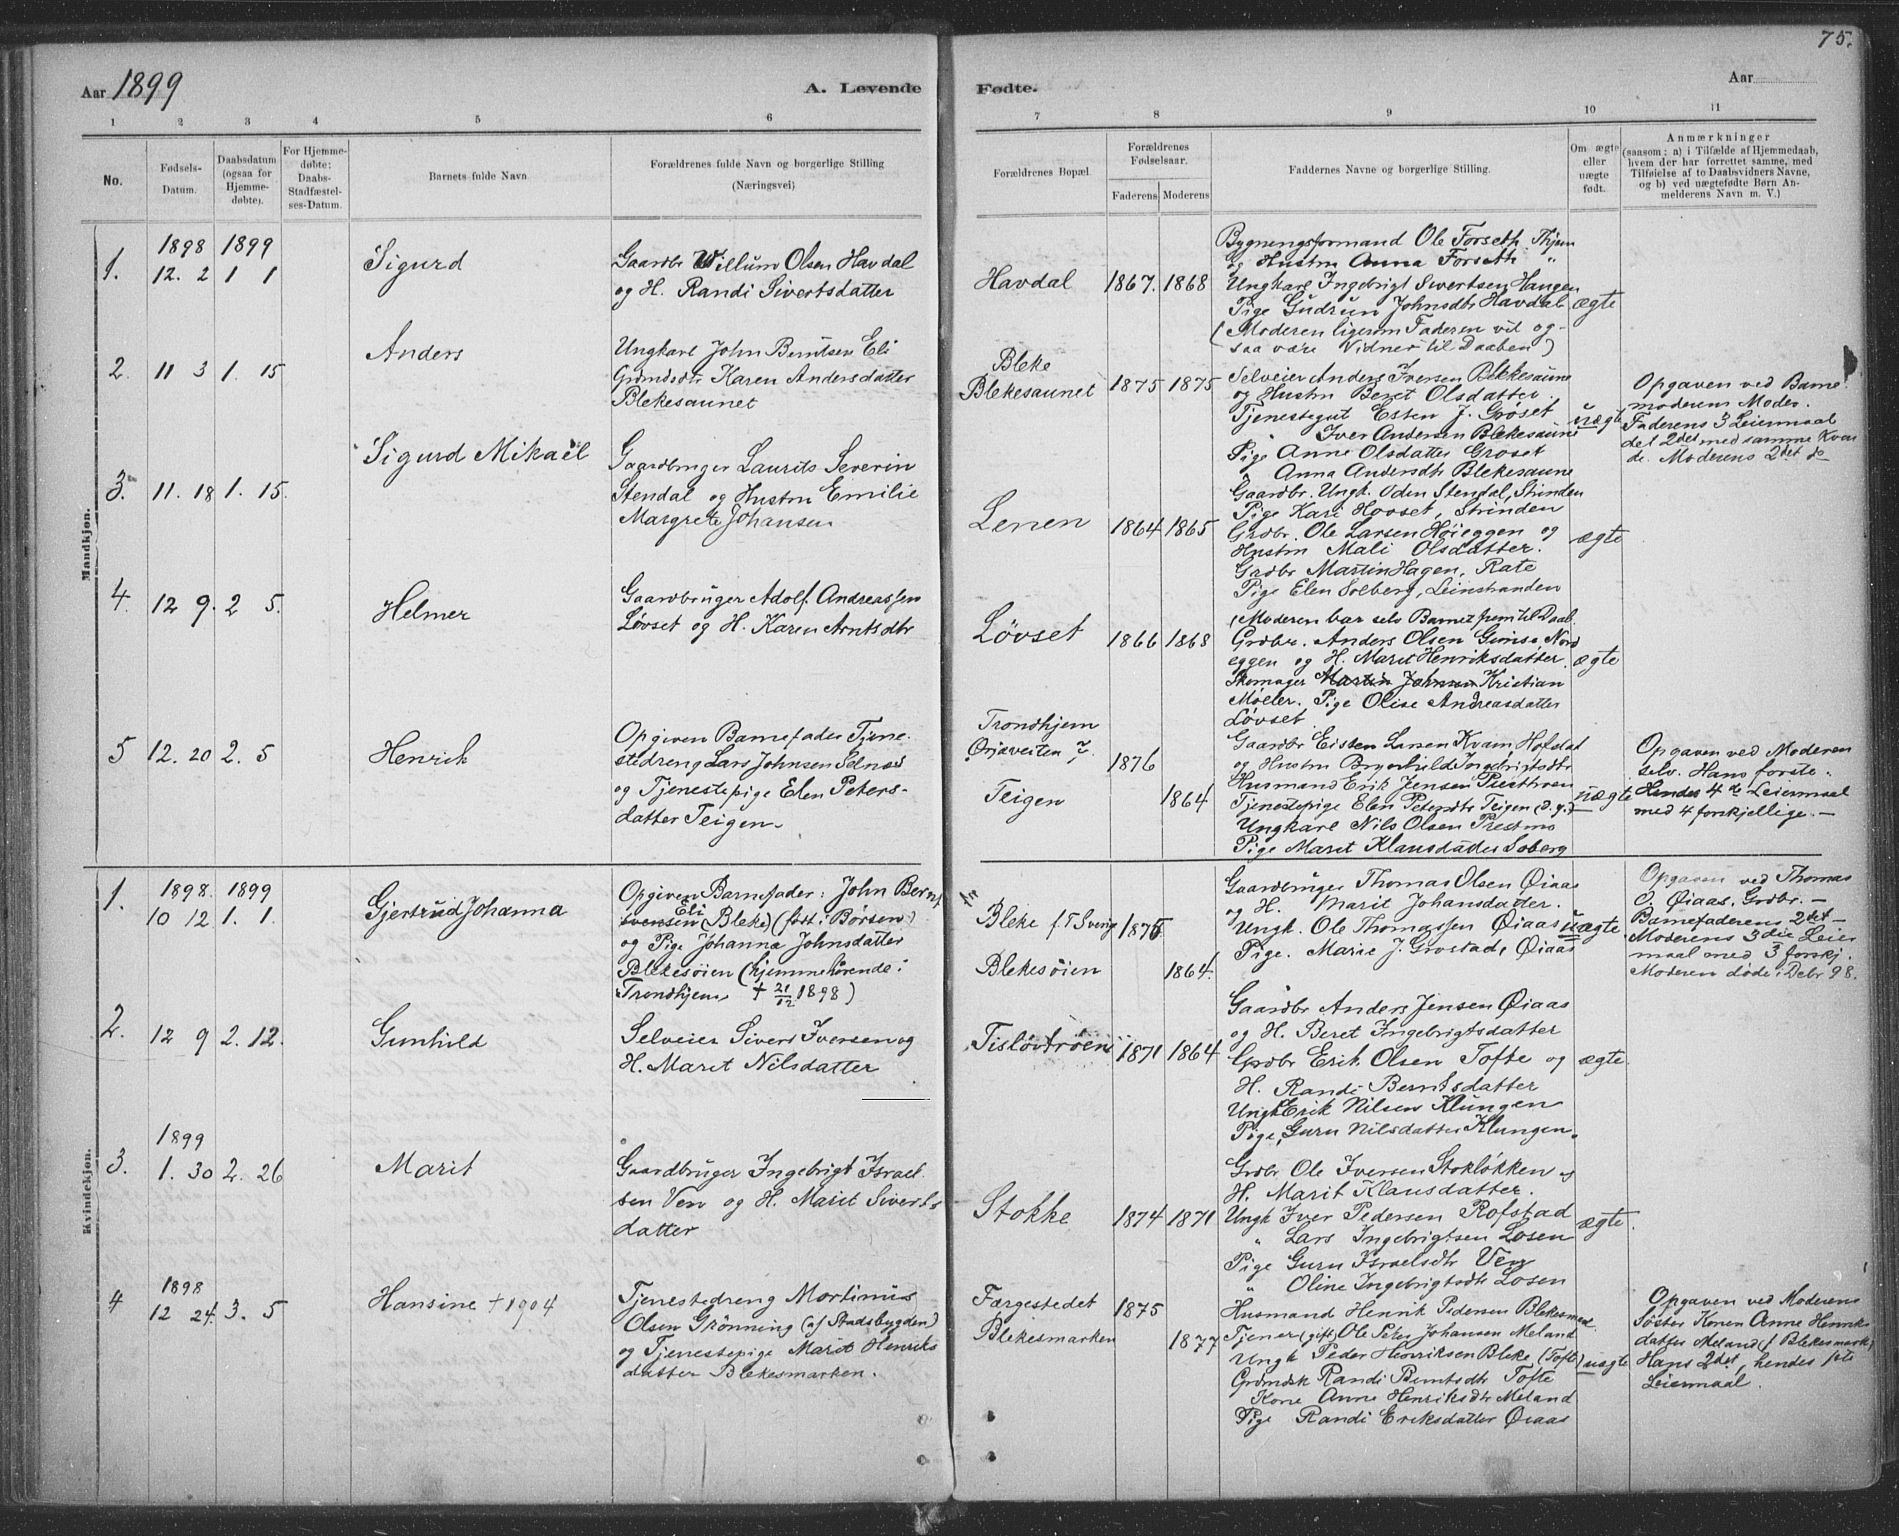 75.
Aar 1899
A. Levende Fødte.
Aar
1 2 3 4 5 6 7 8 9 10 11
No.
Fødsels-Datum.
Daabsdatum (ogsaa for Hjemme-døbte).
For Hjemme-døbte: Daabs-Stadfæstel-ses-Datum.
Barnets fulde Navn
Forældrenes fulde Navn og borgerlige Stilling (Næringsvei)
Forældrenes Bopæl.
Forældrenes Fødselsaar.
Faderens Moderens
Faddernes Navne og borgerlige Stilling.
Om ægte eller uægte født.
Anmærkninger
(saasom: a) i Tilfælde af Hjemmedaab, hvem der har forrettet samme, med Tilføielse af to Daabsvidners Navne, og b) ved uægtefødte Børn An-melderens Navn m. V.)
Mandkjøn.
1.
1898 1899
12. 2 1 1
Sigurd
Gaardbr Willum Olsen Havdal
og H. Randi Sivertsdatter
Havdal
1867. 1868
Bygningsformand Ole Forseth. Thjem
og Hustru Anna Forseth "
Ungkarl Ingebrigt Sivertsen Haugen
Pige Gudrun Johnsdtr Havdal
(Moderen ligesom Faderen vil og-
saa være Vidner til Daaben)
ægte
2.
11 3 1. 15
Anders
Ungkarl John Berntsen Eli
Grdmdsdtr Karen Andersdatter
Blekesaunet
Bleke
Blekesaunet
1875 1875
Selveier Anders Iversen Blekesaune
og Hustru Beret Olsdatter.
Tjenestegut Esten J. Grøset
Iver Andersen Blekesaune
Pige Anne Olsdatter Grøset
Anna Andersdtr Blekesaune
uægte
Opgaven ved Barne
moderens Moder.
Faderens 3 Leiermaal
det 2det med samme Kvin
de. Moderens 2det do
3.
11. 18 1. 15.
Sigurd Mikael
Gaardbruger Laurits Severin
Stendal og Hustru Emilie
Margrete Johansen
Lenen
1864 1865
Gaardbr. Ungk. Oden Stendal, Strinden
Pige Kari Hovset, Strinden
Grdbr. Ole Larsen Høieggen og
Hustru Mali Olsdatter.
Grdbr Martin Hagen, Rate
Pige Elen Solberg, Leinstranden
ægte
4.
12 9. 2 5.
Helmer
Gaardbruger Adolf Andreassen
Løvset og H. Karen Arntsdtr
Løvset
1866 1868
(Moderen bar selv Barnet frem til Daab.
Grdbr. Anders Olsen Gimse Nord
eggen og H. Marit Henriksdatter.
Skomager Martin Johnsen Kristian
Møller. Pige Olise Andreasdatter
Løvset
ægte
5
12. 20 2. 5
Henrik
Opgiven Barnefader Tjene
stedreng Lars Johnsen Selnes
og Tjenestepige Elen Peters-
datter Teigen.
Trondhjem
Ørjaveiten 7.
Teigen
1876
1864
Gaardbr Eisten Larsen Kvam Hofstat
og Hustru Brynhild Ingebrigtsdtr
Husmand Erik Jensen
Tjenestepige Elen Petersdtr Teigen
Ungkarl Nils Olsen Prestmo
Pige Marit Klausdatter Soberg
uægte
Opgaven ved Moderen
selv. Hans første.
Hendes 4de Leiermaal
med 4 forskjellige. —
Kvindekjøn.
1.
1898. 1899
10 12 1. 1.
Gjertrud Johanna
Opgiven Barnefader: John Bernt
Eli
ivensen (Bleke) (født i Børsen)
og Pige Johanna Johnsdatter
Blekesøien (hjemmehørende i
Trondhjem † 21/12 1898)
Bleke f. T
Blekesøien
1875
1864.
Gaardbruger Thomas Olsen Øiaas
og H. Marit Johansdatter.
Ungk. Ole Thomassen Øiaas
Pige. Marie J. Grostad, Øiaas
uægte
Opgaven ved Thomas
O. Øiaas, Grdbr. —
Barnefaderens 2det —
Moderens 3die Leier
maal med 3 forskj.
Moderen døde i Debr 98.
2.
12 9 2. 12.
Gunhild
Selveier Sivert Iversen og
H. Marit Nilsdatter
Tisløvtrøen
1871 1864
Gaardbr Anders Jensen Øiaas
og H. Beret Ingebrigtsdatter
Grdbr Erik Olsen Tofte og
H. Randi Berntsdatter
Ungk Erik Nilsen Klungen
Pige, Guru Nilsdatter Klungen.
ægte
3.
1899
1. 30 2. 26
Marit
Gaardbruger Ingebrigt Israel
sen Ven og H. Marit Siverts
datter
Stokke
1874 1871
Grdbr Ole Iversen Stokløkken og
H. Marit Klausdatter.
Ungk Iver Pedersen Rofstad
" Lars Ingebrigtsen Losen
Pige Guru Israelsdtr Ven
" Oline Ingebrigtsdtr Losen
ægte.
4
1898
12 24. 3. 5
Hansine † 1904
Tjenestedreng Mortinus
Olsen Grønning (af Stadsbygden)
og Tjenestepige Marit Henriks
datter Blekesmarken.
Færgestedet
Blekesmarken
1875
1877
Husmand Henrik Pedersen Blekesmed.
Tjener (gift) Ole Peter Johansen Meland
Ungk Peder Henriksen Bleke (Tofte)
Grdmdsk Randi Berntsdtr Tofte
Kone Anne Henriksdtr Meland
Pige Randi Eriksdatter Øiaas
uægte
Opgaven ved Moderens
Søster Konen Anne Henriks
datter Meland (Blekesmark)
Hans 2det, hendes 1ste
Leiermaal.